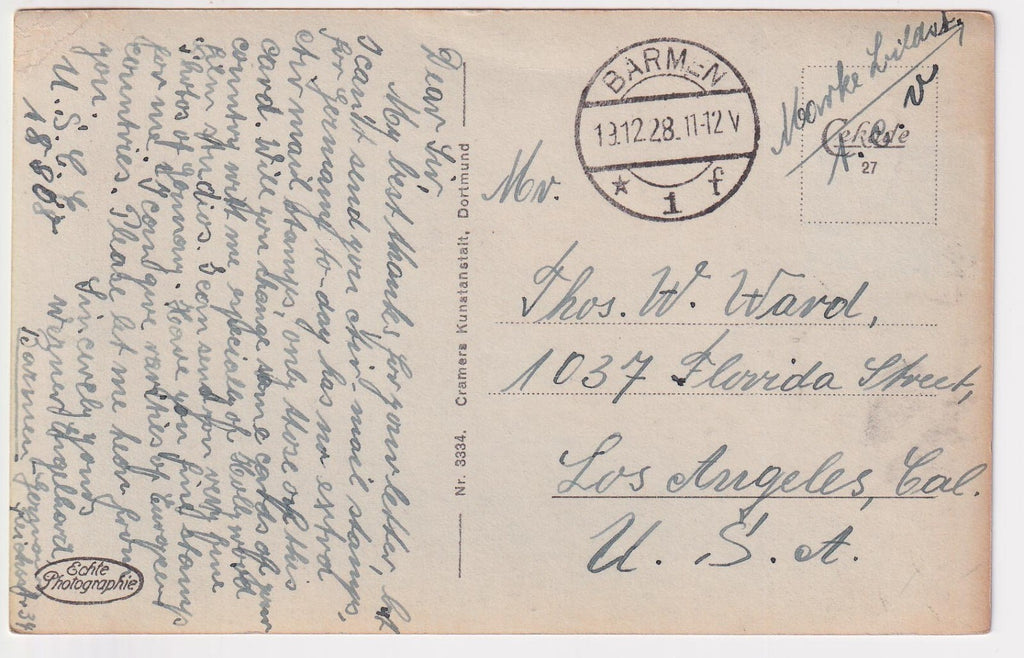 Dear Sir,
My best thanks for your letter, but
I can't send you Air mail stamps,
for Germany to-day has no extra
Air mail stamps, only those of this
card. Will you change some cards of your
country with me, especially of Hollywood
film studios. I can send you very fine
Photos of Germany. Have you find stamp
for me. I can give rarities of European
countries. Please let me hear from
you.
Sincerely yours
Werner Engelhard
Barmen, Germany
U.S.C.C.
18808
Echte
Photographie
Nr. 3334. Cramers Kunstanstalt, Dortmund
BARMEN
19.12.28.11-12 V
* 1 f
Marke Bilds.
v
A.
Cekade
27
Mr.
Thos. W. Ward,
1037 Florida Street,
Los Angeles, Cal.
U. S. A.